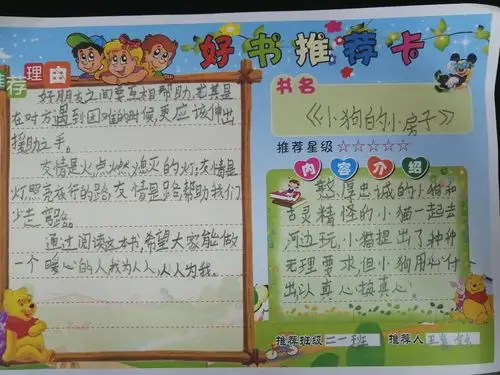 好书推荐卡
推荐理由
好朋友之间要互相帮助,尤其是
在对方遇到困难的时候,更应该伸出
援助之手。
友情是火点燃熄灭的灯;友情是
灯照亮夜行的路;友情是路帮助我们
少走弯路。
通过阅读这本书,希望大家能做
一个暖心的人我为人人,人人为我。
书名
《小狗的小房子》
推荐星级☆☆☆☆☆
内容介绍
憨厚忠诚的小狗和
古灵精怪的小猫一起去
河边玩,小猫提出了种种
无理要求,但小狗用心付
出以真心换真心
推荐班级 二一班 推荐人 王